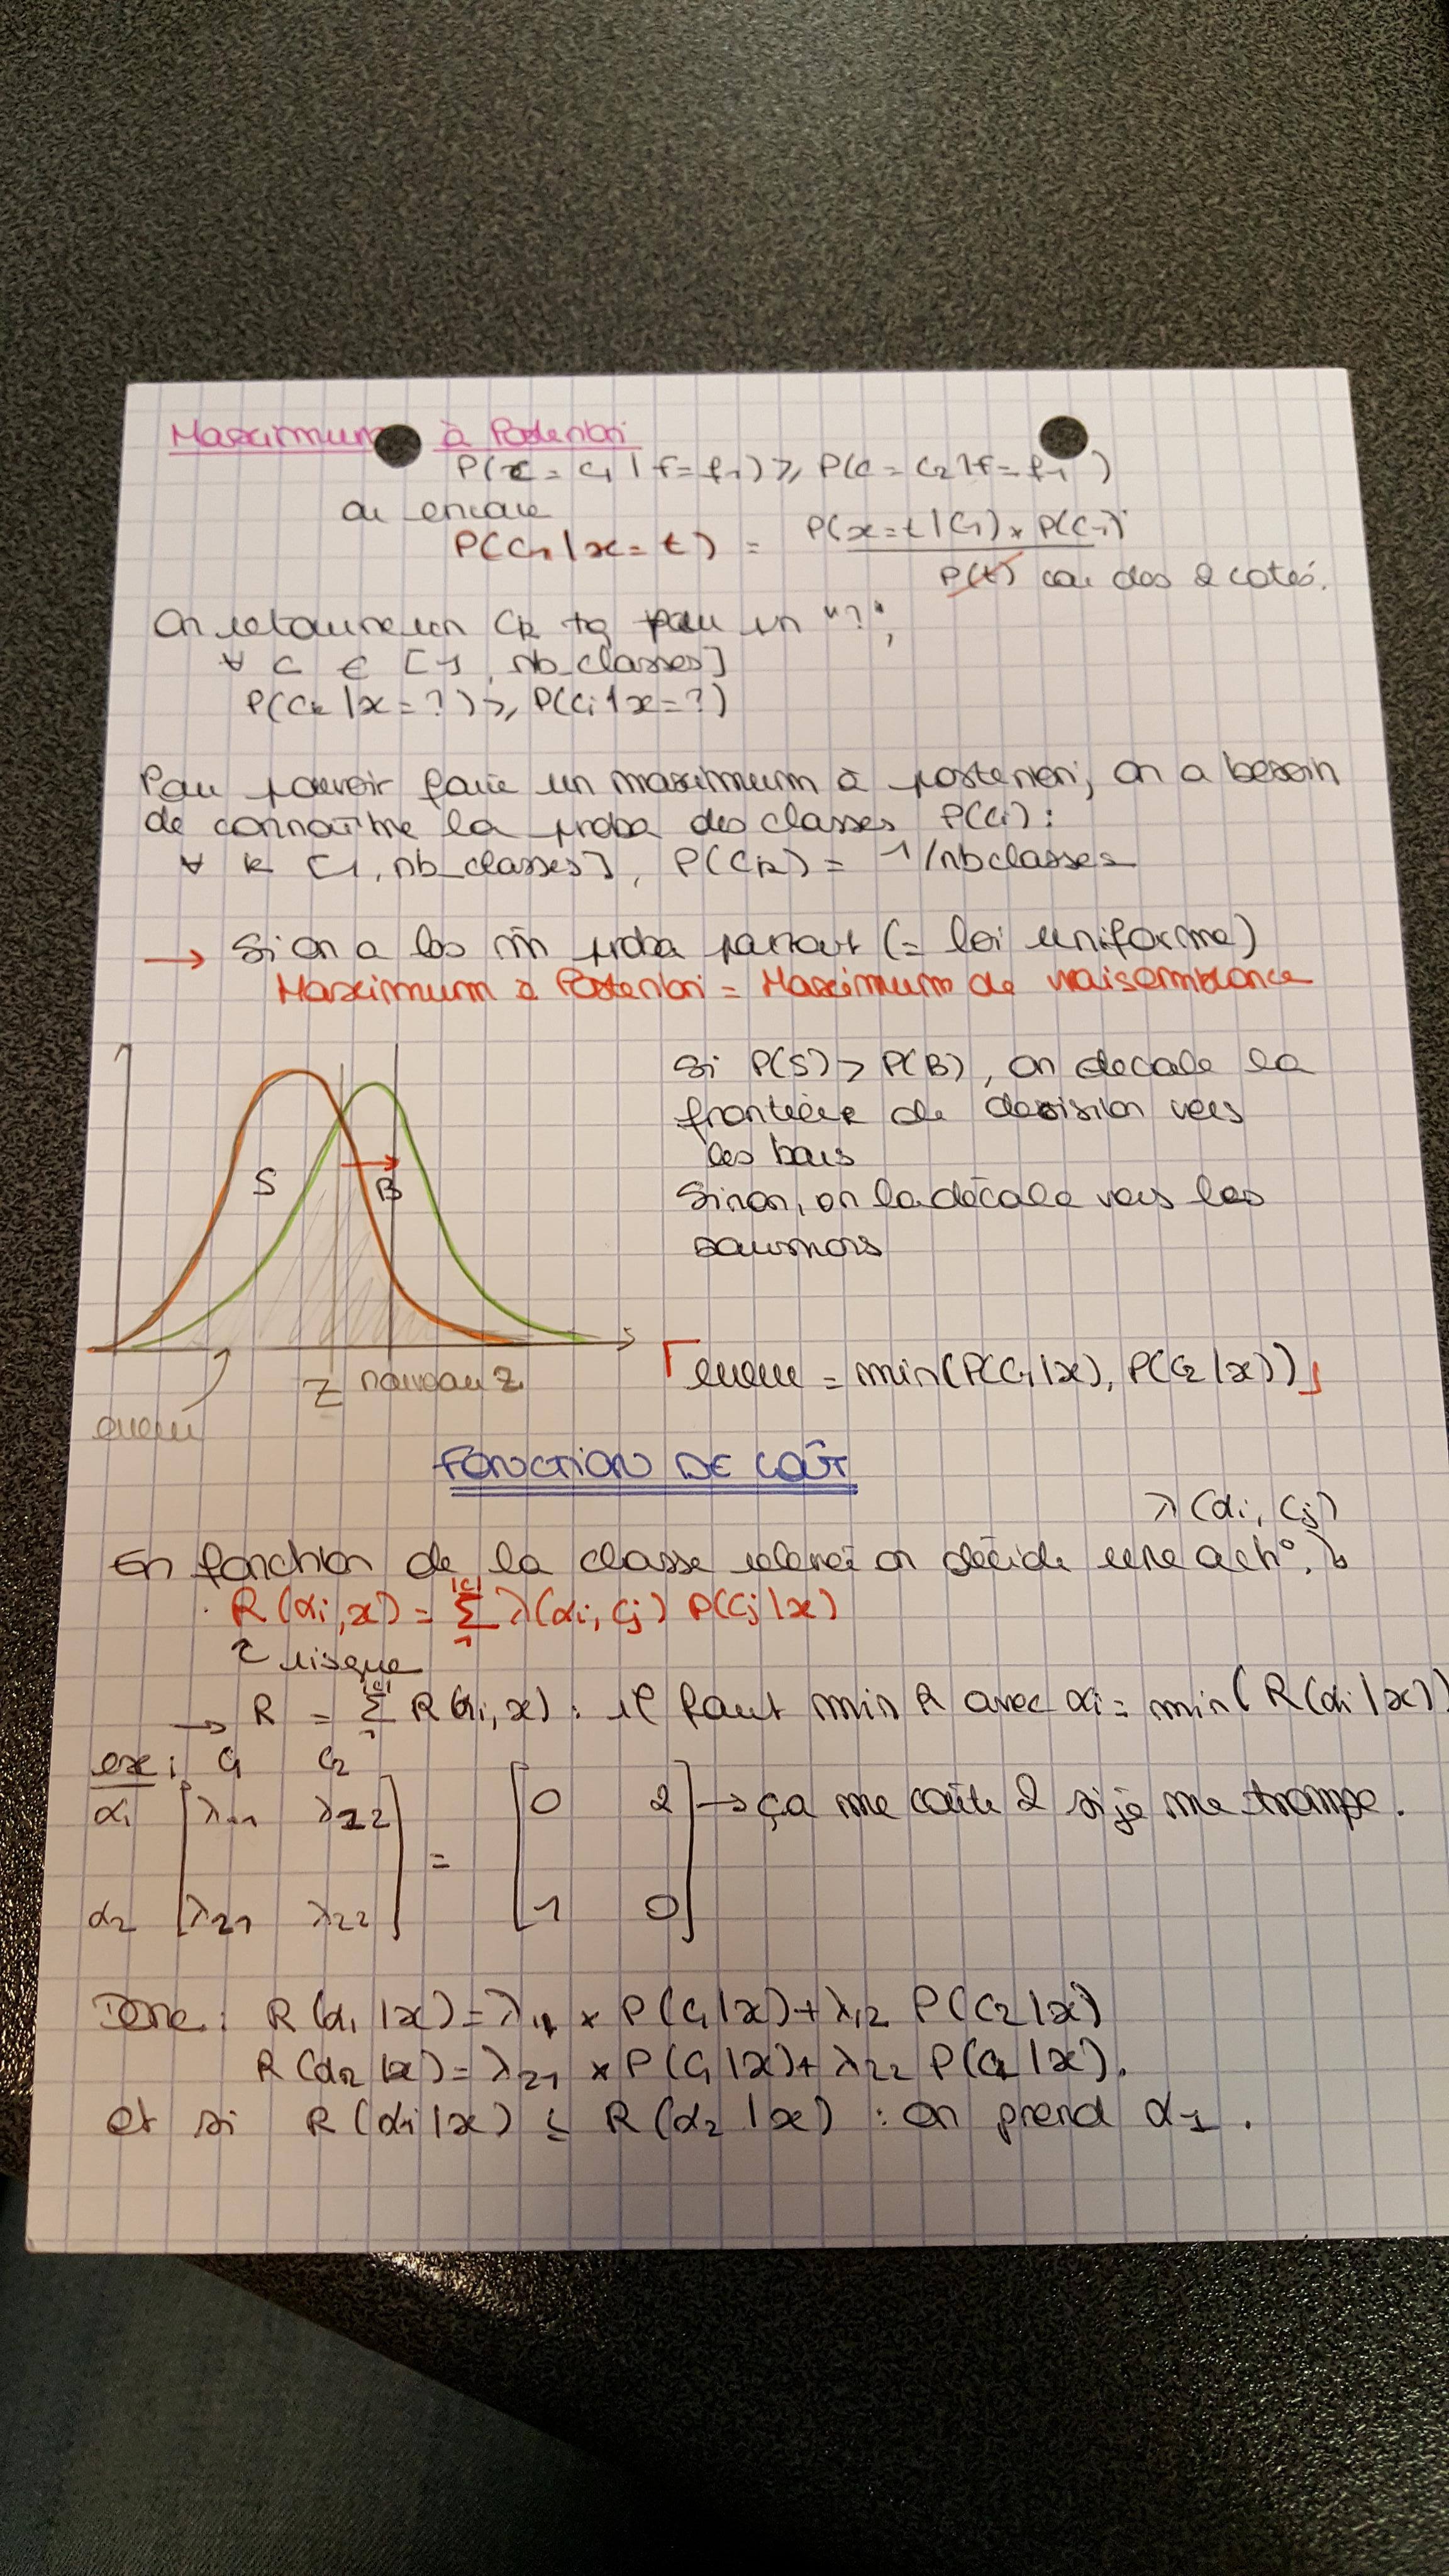 Maximum à Posteriori
P(x = C1 | f = f1) ⩾ P(C = C2 | f = f1)
ou encore
P(C1 | x = t) = P(x = t | C1) × P(C1)
P(t) car des 2 cotés.
On retourne un Ck tq pour un "?",
∀ C ∈ [1, nb_classes]
P(Ck | x = ?) ⩾ P(Ci | x = ?)
Pour pouvoir faire un maximum à posteriori, on a besoin
de connaître la proba des classes P(Ci) :
∀ k [1, nb_classes], P(Ck) = 1/nbclasses
→ Si on a les m̂ proba partout (= loi uniforme)
Maximum à Posteriori = Maximum de vraisemblance
Si P(S) > P(B), on decale la
frontière de décision vers
les bars
Sinon, on la décale vers les
saumons
S
B
Z nouveau Z
erreur
⌈erreur = min(P(C1|x), P(C2|x))⌋
FONCTION DE COÛT
λ(αi, Cj)
En fonction de la classe relevée on décide une act°. ↳
R(αi, x) = |C| Σ 1 λ(αi, Cj) P(Cj|x)
risque
→ R = |C| Σ 1 R(αi, x) : il faut min R avec αi = min(R(αi|x))
ex : C1 C2
α1 [λ11 λ12] = [0 2] → ça me coûte 2 si je me trompe.
α2 [λ21 λ22] [1 0]
Donc : R(α1|x) = λ11 × P(C1|x) + λ12 P(C2|x)
R(α2|x) = λ21 × P(C1|x) + λ22 P(C2|x).
et si R(α1|x) ≤ R(α2|x) : on prend α1.